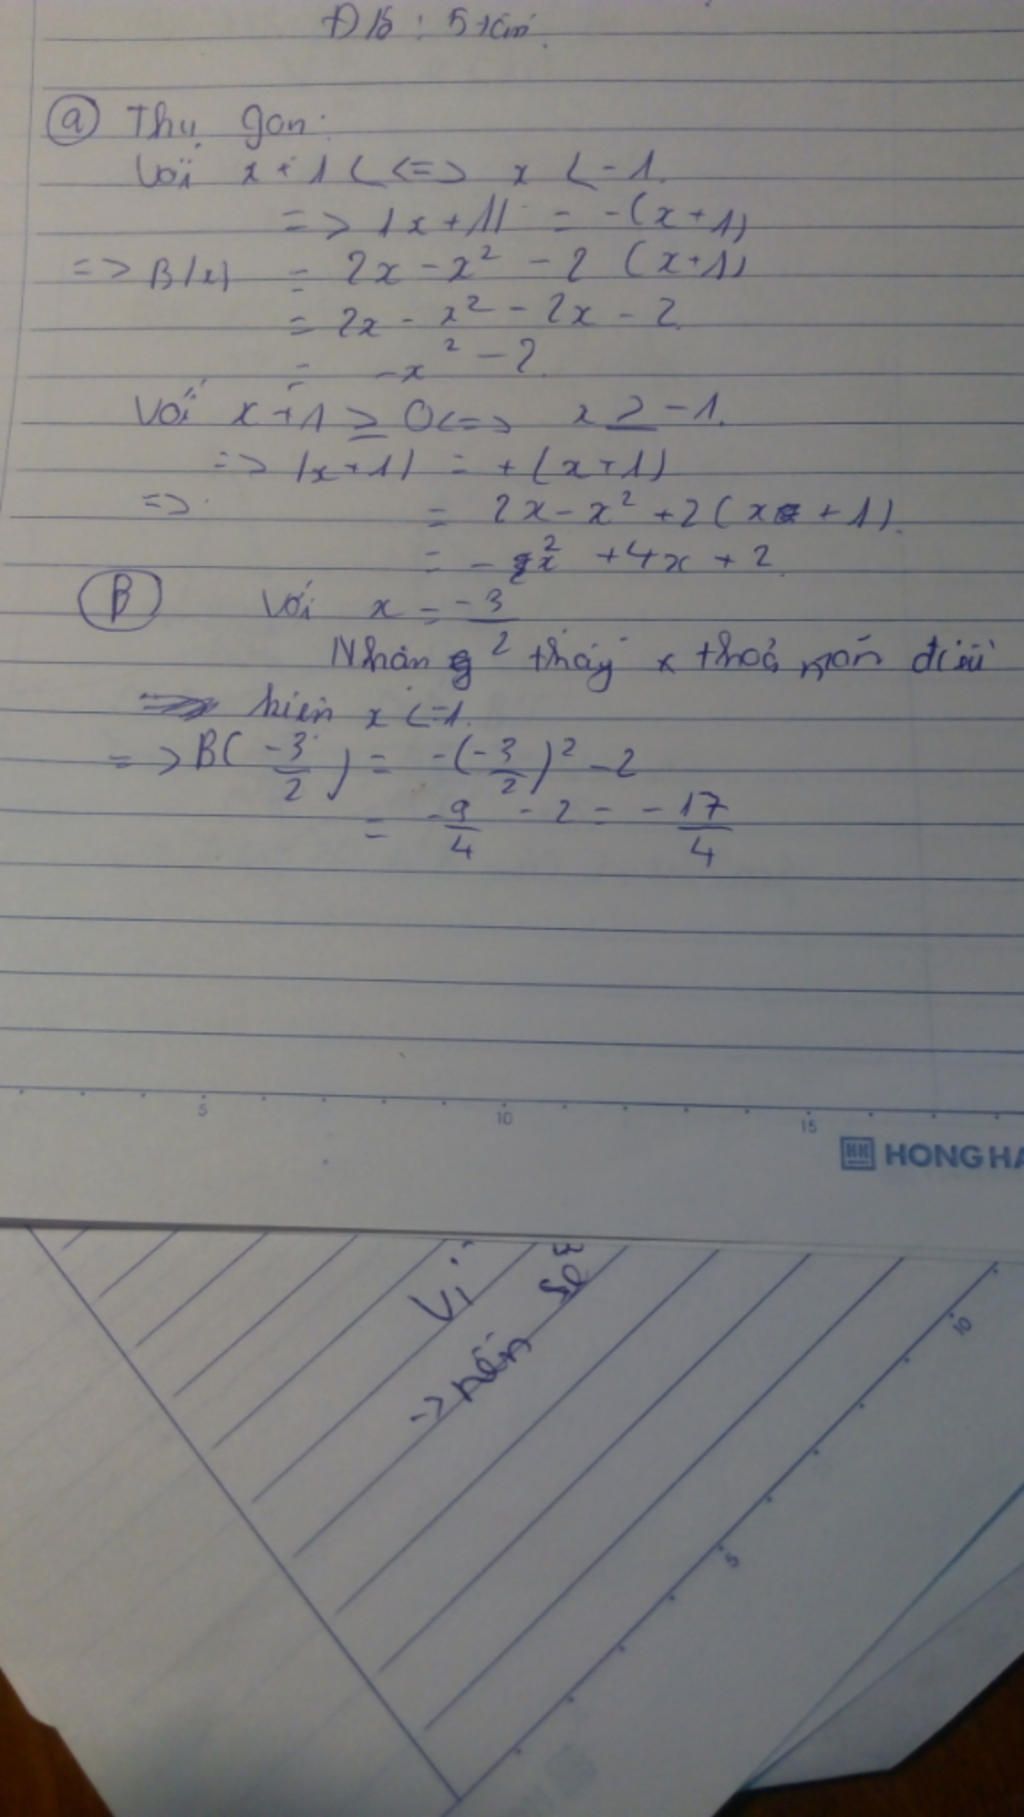 Đ/S : 5 
a Thu gọn:
Với x + 1 < <=> x < -1.
=> |x + 1| = -(x + 1)
=> B(x) = 2x - x² - 2 (x + 1)
= 2x - x² - 2x - 2
= -x² - 2.
Với x + 1 ≥ 0 <=> x ≥ -1.
=> |x + 1| = + (x + 1)
=> = 2x - x² + 2(x + 1).
= - x² + 4x + 2.
B Với x = -3/2
Nhận thấy x thoả mãn điều
kiện x < -1.
=> B(-3/2) = -(-3/2)² - 2
= -9/4 - 2 = -17/4
5 10 15
HONG HA
Vì
-> nên
10
5